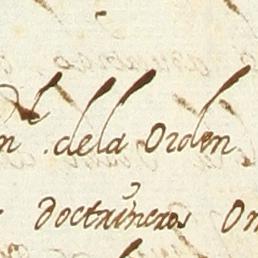 dela Orden
Doctrineros